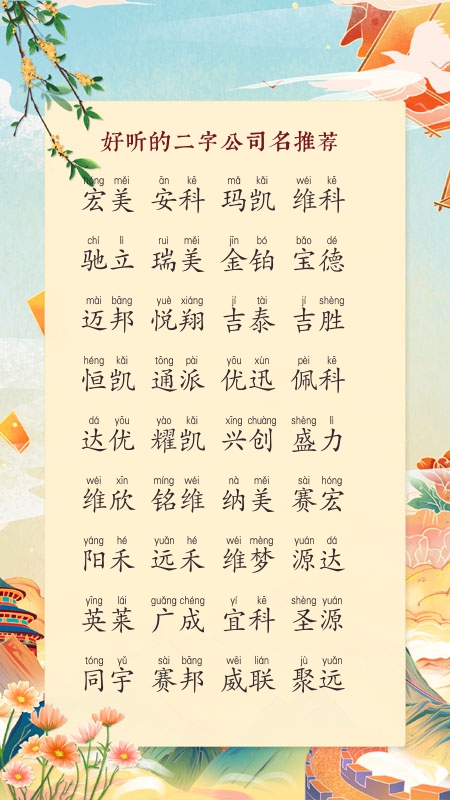 好听的二字公司名推荐
hóng měi ān kē mǎ kǎi wéi kē
宏美 安科 玛凯 维科
chí lì ruì měi jīn bó bǎo dé
驰立 瑞美 金铂 宝德
mài bāng yuè xiáng jí tài jí shèng
迈邦 悦翔 吉泰 吉胜
héng kǎi tōng pài yōu xùn pèi kē
恒凯 通派 优迅 佩科
dá yōu yào kǎi xīng chuàng shèng lì
达优 耀凯 兴创 盛力
wéi xīn míng wéi nà měi sài hóng
维欣 铭维 纳美 赛宏
yáng hé yuǎn hé wéi mèng yuán dá
阳禾 远禾 维梦 源达
yīng lái guǎng chéng yí kē shèng yuán
英莱 广成 宜科 圣源
tóng yǔ sài bāng wēi lián jù yuǎn
同宇 赛邦 威联 聚远